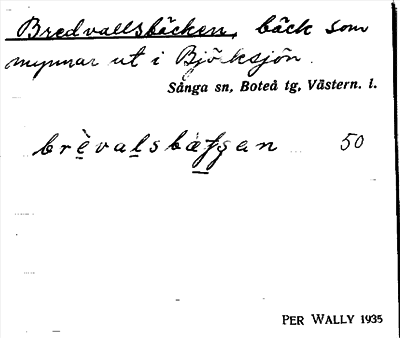 Bredvallsbäcken, bäck som
mynnar ut i Björksjön.
Sånga sn, Boteå tg, Västern. l.
brèvalsbäƒgan 50
PER WALLY 1935